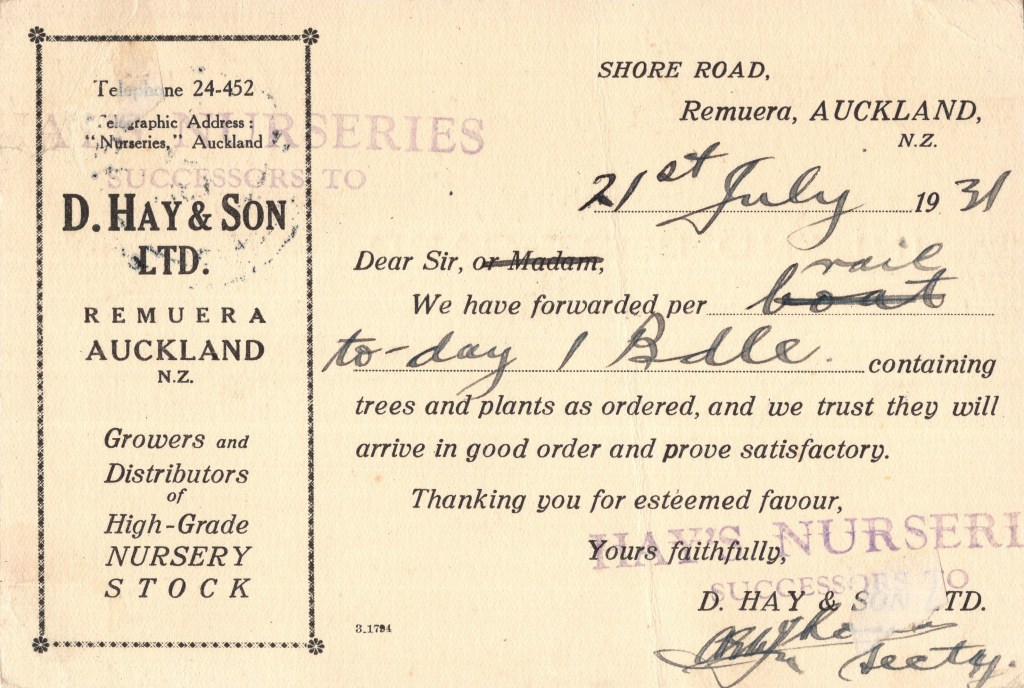 Telephone 24-452
Telegraphic Address:
"Nurseries," Auckland
HAY'S NURSERIES
SUCCESSORS TO
D. HAY & SON
LTD.
REMUERA
AUCKLAND
N.Z.
Growers and
Distributors
of
High-Grade
NURSERY
STOCK
SHORE ROAD,
Remuera, AUCKLAND,
N.Z.
21st July 1931
Dear Sir, or Madam,
rail
We have forwarded per boat
to-day 1 Bdle. containing
trees and plants as ordered, and we trust they will
arrive in good order and prove satisfactory.
Thanking you for esteemed favour,
HAY'S NURSERI
Yours faithfully,
SUCCESSORS TO
D. HAY & SON LTD.
Secty.
3_1794